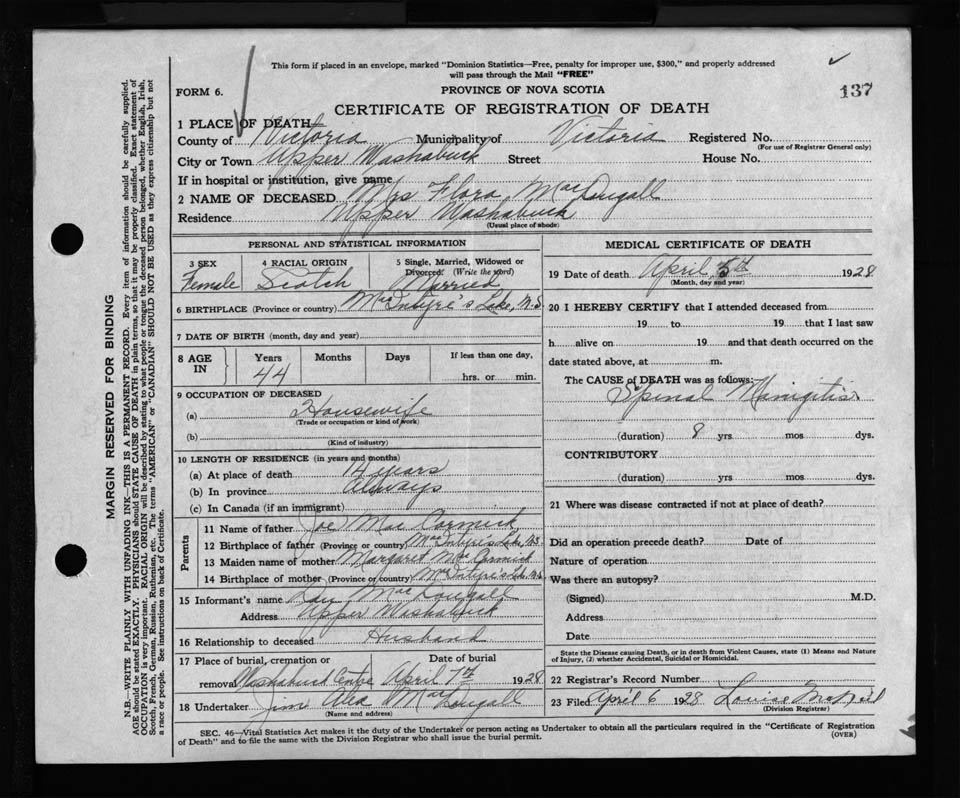 This form if placed in an envelope, marked "Dominion Statistics—Free, penalty for improper use, $300," and properly addressed
will pass through the Mail "FREE"
FORM 6.
PROVINCE OF NOVA SCOTIA
137
CERTIFICATE OF REGISTRATION OF DEATH
1 PLACE OF DEATH
County of Victoria Municipality of Victoria Registered No.
(For use of Registrar General only)
City or Town Upper Washabuck Street House No.
If in hospital or institution, give name
2 NAME OF DECEASED Mrs Flora MacDougall
Residence Upper Washabuck
(Usual place of abode)
PERSONAL AND STATISTICAL INFORMATION
3 SEX 4 RACIAL ORIGIN 5 Single, Married, Widowed or
Divorced. (Write the word)
Female Scotch Married
6 BIRTHPLACE (Province or country) MacIntyre's Lake, N.S
7 DATE OF BIRTH (month, day and year)
8 AGE IN Years Months Days If less than one day,
44 hrs. or min.
9 OCCUPATION OF DECEASED
(a) Housewife
(Trade or occupation or kind of work)
(b)
(Kind of industry)
10 LENGTH OF RESIDENCE (in years and months)
(a) At place of death 14 years
(b) In province always
(c) In Canada (if an immigrant)
Parents
11 Name of father Joe MacCormick
12 Birthplace of father (Province or country) MacIntyre's Lake, N.S.
13 Maiden name of mother Margaret MacCormick
14 Birthplace of mother (Province or country) MacIntyre's Lake, N.S.
15 Informant's name Dan MacDougall
Address Upper Washabuck
16 Relationship to deceased Husband
17 Place of burial, cremation or Date of burial
removal Washabuck Centre April 7th 1928
18 Undertaker Jim Alex MacDougall
(Name and address)
MEDICAL CERTIFICATE OF DEATH
19 Date of death April 5th 1928
(Month, day and year)
20 I HEREBY CERTIFY that I attended deceased from
19 to 19 that I last saw
h alive on 19 and that death occurred on the
date stated above, at m.
The CAUSE of DEATH was as follows:
Spinal Minigitis
(duration) 8 yrs mos dys.
CONTRIBUTORY
(duration) yrs mos dys.
21 Where was disease contracted if not at place of death?
Did an operation precede death? Date of
Nature of operation
Was there an autopsy?
(Signed) M.D.
Address
Date
State the Disease causing Death, or in death from Violent Causes, state (1) Means and Nature
of Injury, (2) whether Accidental, Suicidal or Homicidal.
22 Registrar's Record Number
23 Filed April 6 1928 Louise McNeil
(Division Registrar)
SEC. 46—Vital Statistics Act makes it the duty of the Undertaker or person acting as Undertaker to obtain all the particulars required in the "Certificate of Registration
of Death" and to file the same with the Division Registrar who shall issue the burial permit.
(OVER)
MARGIN RESERVED FOR BINDING
N.B.—WRITE PLAINLY WITH UNFADING INK—THIS IS A PERMANENT RECORD. Every item of information should be carefully supplied.
AGE should be stated EXACTLY. PHYSICIANS should STATE CAUSE OF DEATH in plain terms, so that it may be properly classified. Exact statement of
OCCUPATION is very important. RACIAL ORIGIN will be described by stating to what people or tongue the deceased person belonged, whether English, Irish,
Scotch, French, German, Russian, Ruthenian, etc. The terms "AMERICAN" or "CANADIAN" SHOULD NOT BE USED as they express citizenship but not
a race or people. See instructions on back of Certificate.